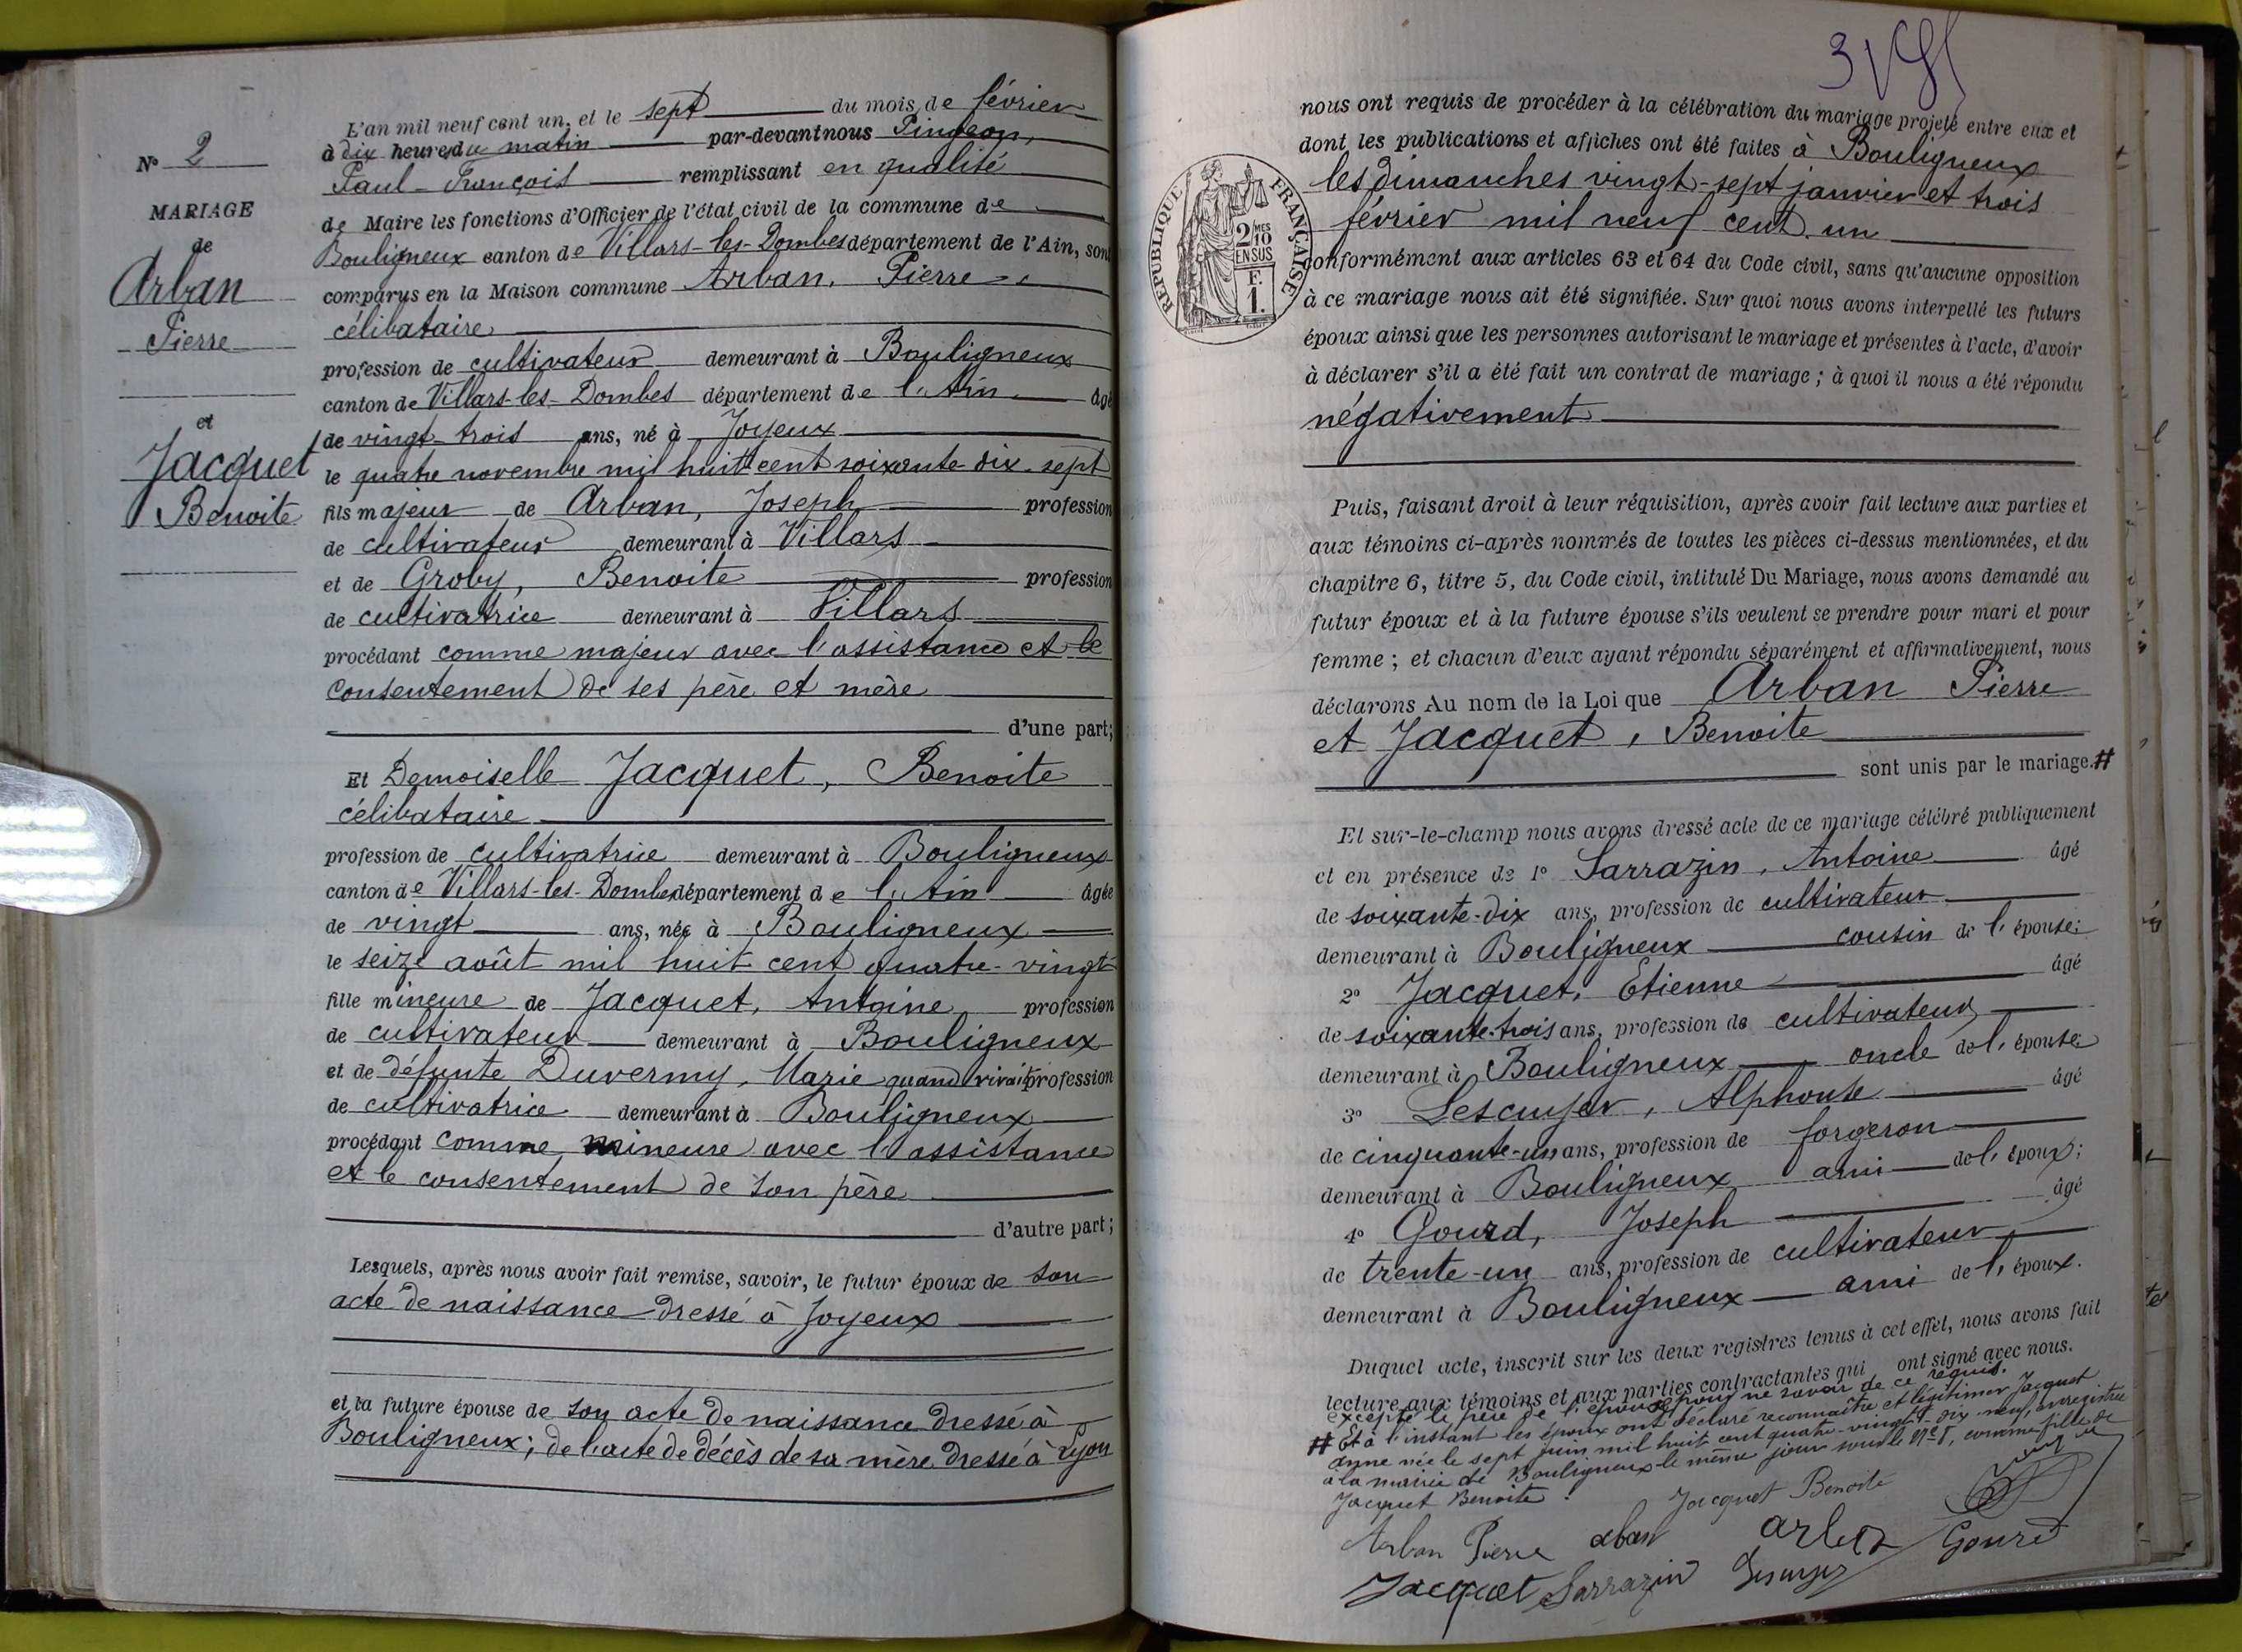 L'an mil neuf cent un, et le sept du mois de février
à dix heures du matin par-devant nous Pingeon,
Paul-François remplissant en qualité
de Maire les fonctions d'Officier de l'état civil de la commune de
Bouligneux canton de Villars-les-Dombes département de l'Ain, sont
comparus en la Maison commune Arban, Pierre
célibataire
profession de cultivateur demeurant à Bouligneux
canton de Villars-les-Dombes département de l'Ain âgé
de vingt-trois ans, né à Joyeux
le quatre novembre mil huit cent soixante-dix-sept
fils majeur de Arban, Joseph profession
de cultivateur demeurant à Villars
et de Groby, Benoite profession
de cultivatrice demeurant à Villars
procédant comme majeur avec l'assistance et le
consentement de ses père et mère
d'une part;
Et Demoiselle Jacquet, Benoite
célibataire
profession de cultivatrice demeurant à Bouligneux
canton de Villars-les-Dombes département de l'Ain âgée
de vingt ans, née à Bouligneux
le seize août mil huit cent quatre-vingt
fille mineure de Jacquet, Antoine profession
de cultivateur demeurant à Bouligneux
et de défunte Duvermy, Marie quand vivait profession
de cultivatrice demeurant à Bouligneux
procédant comme mineure avec l'assistance
et le consentement de son père
d'autre part;
Lesquels, après nous avoir fait remise, savoir, le futur époux de son
acte de naissance dressé à Joyeux
et la future épouse de son acte de naissance dressé à
Bouligneux; de l'acte de décès de sa mère dressé à Lyon
N° 2
MARIAGE
de
Arban
Pierre
et
Jacquet
Benoite
nous ont requis de procéder à la célébration du mariage projeté entre eux et
dont les publications et affiches ont été faites à Bouligneux
les dimanches vingt-sept janvier et trois
février mil neuf cent un
conformément aux articles 63 et 64 du Code civil, sans qu'aucune opposition
à ce mariage nous ait été signifiée. Sur quoi nous avons interpellé les futurs
époux ainsi que les personnes autorisant le mariage et présentes à l'acte, d'avoir
à déclarer s'il a été fait un contrat de mariage; à quoi il nous a été répondu
négativement
RÉPUBLIQUE FRANÇAISE
2 MES
10
EN SUS
F.
1.
Puis, faisant droit à leur réquisition, après avoir fait lecture aux parties et
aux témoins ci-après nommés de toutes les pièces ci-dessus mentionnées, et du
chapitre 6, titre 5, du Code civil, intitulé Du Mariage, nous avons demandé au
futur époux et à la future épouse s'ils veulent se prendre pour mari et pour
femme; et chacun d'eux ayant répondu séparément et affirmativement, nous
déclarons Au nom de la Loi que Arban Pierre
et Jacquet, Benoite
sont unis par le mariage.#
Et sur-le-champ nous avons dressé acte de ce mariage célébré publiquement
et en présence de 1° Sarrazin, Antoine âgé
de soixante-dix ans, profession de cultivateur
demeurant à Bouligneux cousin de l'épouse;
2° Jacquet, Etienne âgé
de soixante-trois ans, profession de cultivateur
demeurant à Bouligneux oncle de l'épouse;
3° Lescuyer, Alphonse âgé
de cinquante-un ans, profession de forgeron
demeurant à Bouligneux ami de l'époux;
4° Gourd, Joseph âgé
de trente-un ans, profession de cultivateur
demeurant à Bouligneux ami de l'époux.
Duquel acte, inscrit sur les deux registres tenus à cet effet, nous avons fait
lecture aux témoins et aux parties contractantes qui ont signé avec nous.
excepté le père de l'épouse pour ne savoir de ce requis.
# Et à l'instant les époux ont déclaré reconnaître et légitimer Jacquet
Anne née le sept juin mil huit cent quatre-vingt-dix-neuf, enregistrée
à la mairie de Bouligneux le même jour sous le N° 8, comme fille de
Jacquet Benoite.
Jacquet Benoite
Arban Pierre arban Gourd
Jacquet Sarrazin Lescuyer